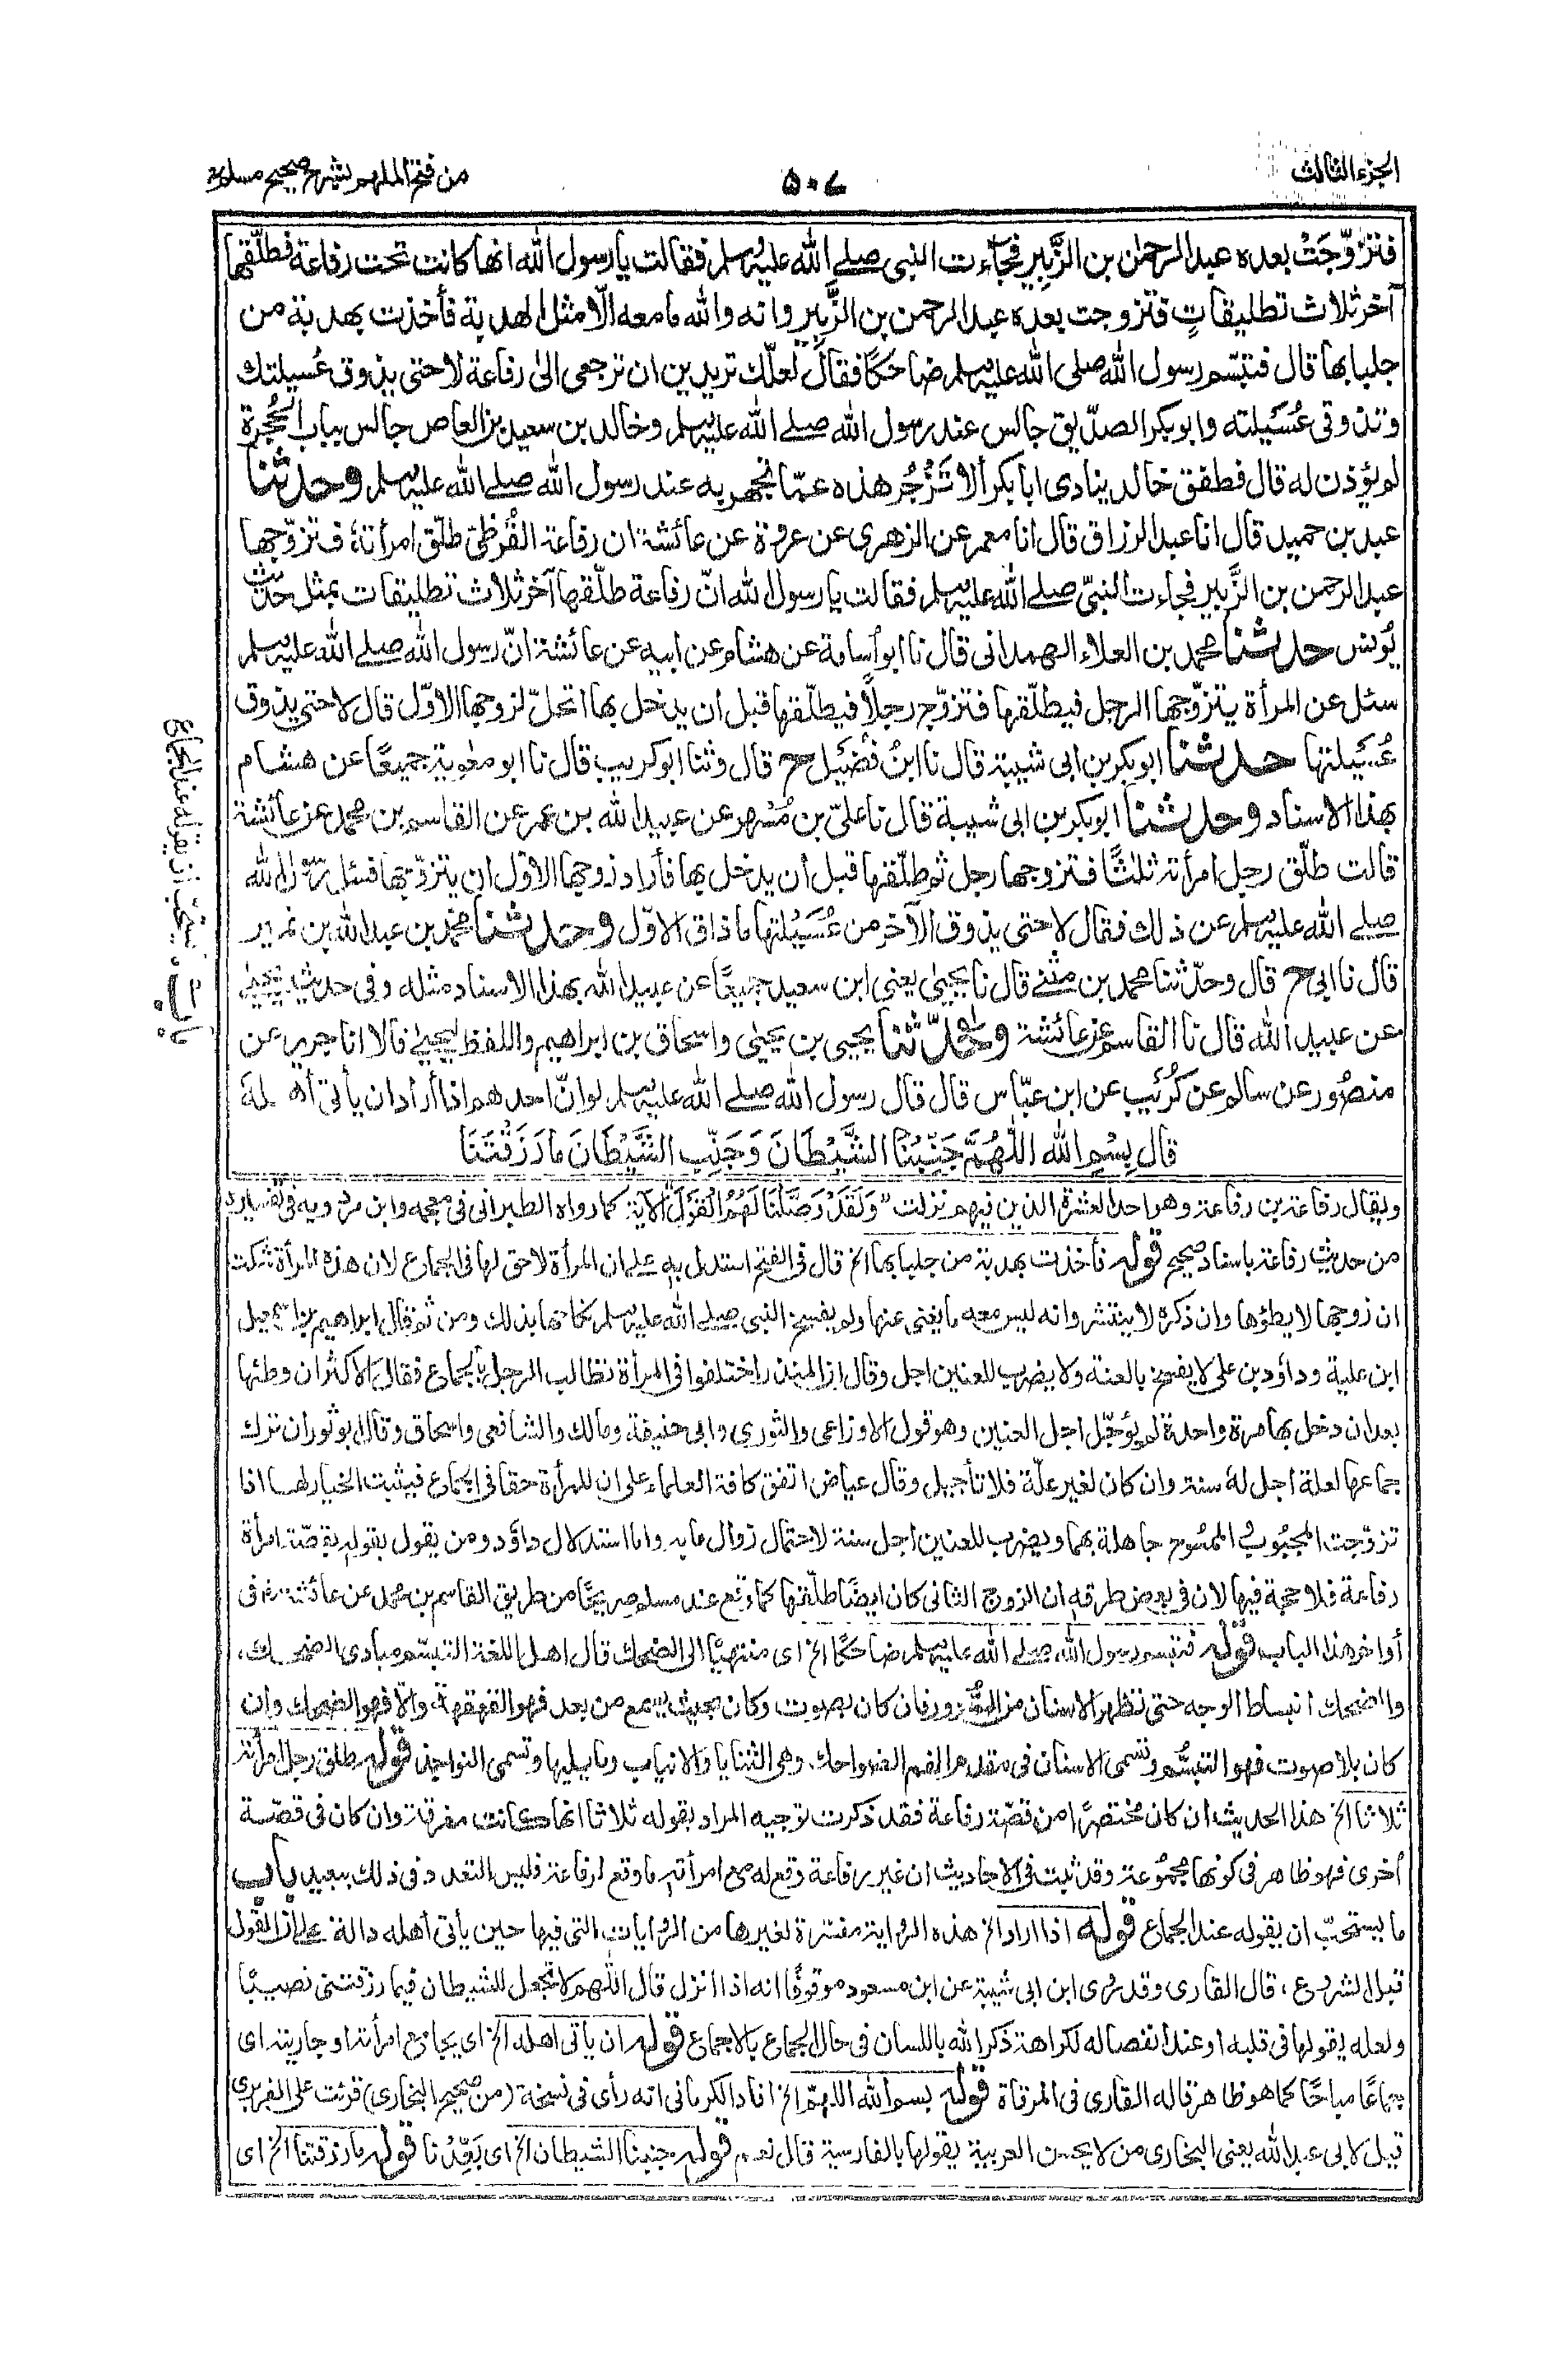 الجزء الثالث
٥٠٧
من فتح الملهم بشرح صحيح مسلم
فتزوّجَتْ بعده عبد الرحمٰن بن الزَّبِير فجاءت النبي صلے الله عليه وسلم فقالت يا رسول الله انها كانت تحت رفاعة فطلّقها
آخر ثلاث تطليقاتٍ فتزوجت بعده عبد الرحمن بن الزَّبِير وانه والله ما معه الّا مثل الهدبة فأخذت بهدبة من
جلبابها قال فتبسّم رسول الله صلى الله عليه وسلم ضاحكًا فقال لعلّك تريدين ان ترجعى الىٰ رفاعة لا حتى يذوق عُسيلتك
وتذوقى عُسَيلته وابوبكر الصدّيق جالس عند رسول الله صلے الله عليه وسلم وخالد بن سعيد بن العاص جالس بباب الحُجرة
لم يؤذن له قال فطفق خالد ينادى ابا بكر ألا تَزْجُر هذه عمّا تجهر به عند رسول الله صلے الله عليه وسلم وحدثنا
عبد بن حميد قال انا عبد الرزاق قال انا معمر عن الزهرى عن عروة عن عائشة ان رفاعة القُرظىّ طلّق امرأته، فتزوّجها
عبد الرحمن بن الزَّبير فجاءت النبىّ صلے الله عليه وسلم فقالت يا رسول الله انّ رفاعة طلّقها آخر ثلاث تطليقات بمثل حديث
يُونس حدثنا محمد بن العلاء الهمدانى قال نا ابو أسامة عن هشام عن ابيه عن عائشة انّ رسول الله صلے الله عليه وسلم
سئل عن المرأة يتزوّجها الرجل فيطلّقها فتزوّج رجلاً فيطلّقها قبل أن يدخل بها اتحلّ لزوجها الاوّل قال لا حتى يذوق
عُسَيلتها حدثنا ابوبكر بن ابى شيبة قال نا ابنُ فضَيل ح قال وثنا ابوكريب قال نا ابو معٰوية جميعًا عن هشام
بهذا الاسناد وحدثنا ابوبكر بن ابى شيبة قال نا علىّ بن مُسْهر عن عبيد الله بن عمر عن القاسم بن محمد عن عائشة
قالت طلّق رجل امرأته ثلٰثًا فتزوجها رجل ثم طلّقها قبل أن يدخل بها فأراد زوجها الاوّل ان يتزوّجها فسئل رسول الله
صلے الله عليه وسلم عن ذلك فقال لا حتى يذوق الآخر من عُسَيْلتها ما ذاق الاوّل وحدثنا محمد بن عبد الله بن نمير
قال نا ابى ح قال وحدّثنا محمد بن مثنے قال نا يحيٰى يعنى ابن سعيد جميعًا عن عبيد الله بهذا الاسناد مثله وفى حديث يحيٰى
عن عبيد الله قال نا القاسم عن عائشة وحدّثنا يحيى بن يحيىٰ واسحاق بن ابراهيم واللفظ ليحيٰے قالا انا جرير عن
منصُور عن سالم عن كُرَيب عن ابن عبّاس قال قال رسول الله صلے الله عليه وسلم لو انّ احدهم اذا أراد ان يأتى أهله
قال بِسْمِ الله اللّٰهُمَّ جَنِّبْنَا الشَّيْطَانَ وَجَنِّبِ الشَّيْطَانَ مَا رَزَقْتَنَا
باب ما يستحبّ ان يقوله عند الجماع
ويقال رفاعة بن رفاعة وهو احد العشرة الذين فيهم نزلت "وَلَقَدْ وَصَّلْنَا لَهُمُ الْقَوْلَ" الآية كما رواه الطبرانى فى معجمه وابن مردويه فى تفسيره
من حديث رفاعة باسناد صحيح قوله فأخذت بهدبة من جلبابها الخ قال فى الفتح استدل به علے ان المرأة لا حق لها فى الجماع لان هذه المرأة شكت
ان زوجها لا يطؤها وان ذكره لا ينتشر وانه ليس معه ما يغنى عنها ولم يفسخ النبى صلے الله عليه وسلم نكاحها بذلك ومن ثم قال ابراهيم بن اسمعيل
ابن علية وداؤد بن على لا يفسخ بالعنة ولا يضرب للعنين اجل وقال ابن المنذر اختلفوا فى المرأة تطالب الرجل بالجماع فقال الاكثر ان وطئها
بعد ان دخل بها مرة واحدة لم يؤجّل اجل العنين وهو قول الاوزاعى والثورى وابى حنيفة ومالك والشافعى واسحاق وقال ابو ثور ان ترك
جماعها لعلة اجل لهٗ سنة وان كان لغير علّة فلا تأجيل وقال عياض اتفق كافة العلماء على ان للمرأة حقا فى الجماع فيثبت الخيار لها اذا
تزوّجت المجبُوب والممسُوح جاهلة بهما ويضرب للعنين اجل سنة لاحتمال زوال ما به واما استدلال داؤد ومن يقول بقوله بقصّة امرأة
رفاعة فلا حجة فيها لان فى بعض طرقه ان الزوج الثانى كان ايضًا طلّقها كما وقع عند مسلم صريحًا من طريق القاسم بن محمد عن عائشة فى
أواخر هذا الباب قوله فتبسم رسول الله صلے الله عليه وسلم ضاحكًا الخ اى منتهيًا الى الضحك قال اهل اللغة التبسّم مبادى الضحك،
والضحك انبساط الوجه حتى تظهر الاسنان من السُّرور فان كان بصوت وكان بحيث يسمع من بعد فهو القهقهة والّا فهو الضحك وان
كان بلا صوت فهو التبسُّم وتسمى الاسنان فى مقدم الفم الضواحك وهى الثنايا والانياب وما يليها وتسمى النواجذ قوله طلق رجل امرأته
ثلاثا الخ هذا الحديث ان كان مختصرًا من قصّة رفاعة فقد ذكرت توجيه المراد بقوله ثلاثا انها كانت مفرقة وان كان فى قصّة
أخرى فهو ظاهر فى كونها مجمُوعة وقد ثبت فى الاحاديث ان غير رفاعة وقع له مع امرأته ما وقع لرفاعة فليس التعدد فى ذلك ببعيد باب
ما يستحبّ ان يقوله عند الجماع قوله اذا اراد الخ هذه الرواية مفسّرة لغيرها من الروايات التى فيها حين يأتى أهله دالة علے ان القول
قبل الشروع، قال القارى وقد روى ابن ابى شيبة عن ابن مسعود موقوفًا انه اذا انزل قال اللّٰهم لا تجعل للشيطان فيما رزقتنى نصيبًا
ولعله يقولها فى قلبه او عند انفصاله لكراهة ذكر الله باللسان فى حال الجماع بالاجماع قوله ان ياتى اهله الخ اى يجامع امرأته او جاريته اى
جماعًا مباحًا كما هو ظاهر قاله القارى فى المرقاة قوله بسم الله اللهمّ الخ افاد الكرمانى انه رأى فى نسخة (من صحيح البخارى) قرئت على الفربرى
قيل لابى عبد الله يعنى البخارى من لا يحسن العربية يقولها بالفارسية قال نعم قوله جنبنا الشيطان الخ اى بَعِّدْنا قوله ما رزقتنا الخ اى